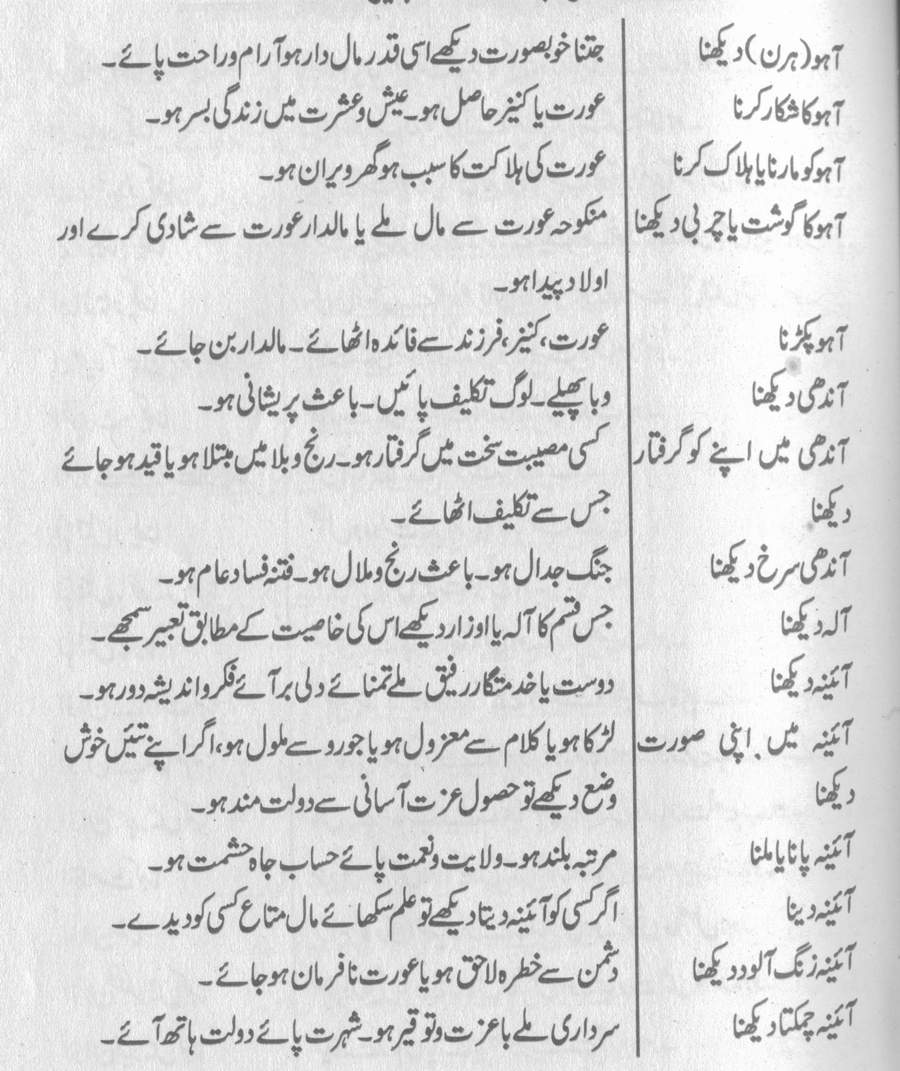 آہو (ہرن) دیکھنا جتنا خوبصورت دیکھے اسی قدر مال دار ہو آرام و راحت پائے۔
آہو کا شکار کرنا عورت یا کنیز حاصل ہو۔ عیش و عشرت میں زندگی بسر ہو۔
آہو کو مارنا یا ہلاک کرنا عورت کی ہلاکت کا سبب ہو گھر ویران ہو۔
آہو کا گوشت یا چربی دیکھنا منکوحہ عورت سے مال ملے یا مالدار عورت سے شادی کرے اور
اولاد پیدا ہو۔
آہو پکڑنا عورت، کنیز، فرزند سے فائدہ اٹھائے۔ مالدار بن جائے۔
آندھی دیکھنا وبا پھیلے۔ لوگ تکلیف پائیں۔ باعث پریشانی ہو۔
آندھی میں اپنے کو گرفتار کسی مصیبت سخت میں گرفتار ہو۔ رنج و بلا میں مبتلا ہو یا قید ہو جائے
دیکھنا جس سے تکلیف اٹھائے۔
آندھی سرخ دیکھنا جنگ جدال ہو۔ باعث رنج و ملال ہو۔ فتنہ فساد عام ہو۔
آلہ دیکھنا جس قسم کا آلہ یا اوزار دیکھے اس کی خاصیت کے مطابق تعبیر سمجھے۔
آئینہ دیکھنا دوست یا خدمتگار رفیق ملے تمنائے دلی بر آئے فکر و اندیشہ دور ہو۔
آئینہ میں اپنی صورت لڑکا ہو یا کلام سے معزول ہو یا جورو سے ملول ہو، اگر اپنے تئیں خوش
دیکھنا وضع دیکھے تو حصول عزت آسانی سے دولت مند ہو۔
آئینہ پانا یا ملنا مرتبہ بلند ہو۔ ولایت و نعمت پائے حساب جاہ حشمت ہو۔
آئینہ دینا اگر کسی کو آئینہ دیتا دیکھے تو علم سکھائے مال متاع کسی کو دیدے۔
آئینہ زنگ آلود دیکھنا دشمن سے خطرہ لاحق ہو یا عورت نافرمان ہو جائے۔
آئینہ چمکتا دیکھنا سرداری ملے باعزت و توقیر ہو۔ شہرت پائے دولت ہاتھ آئے۔